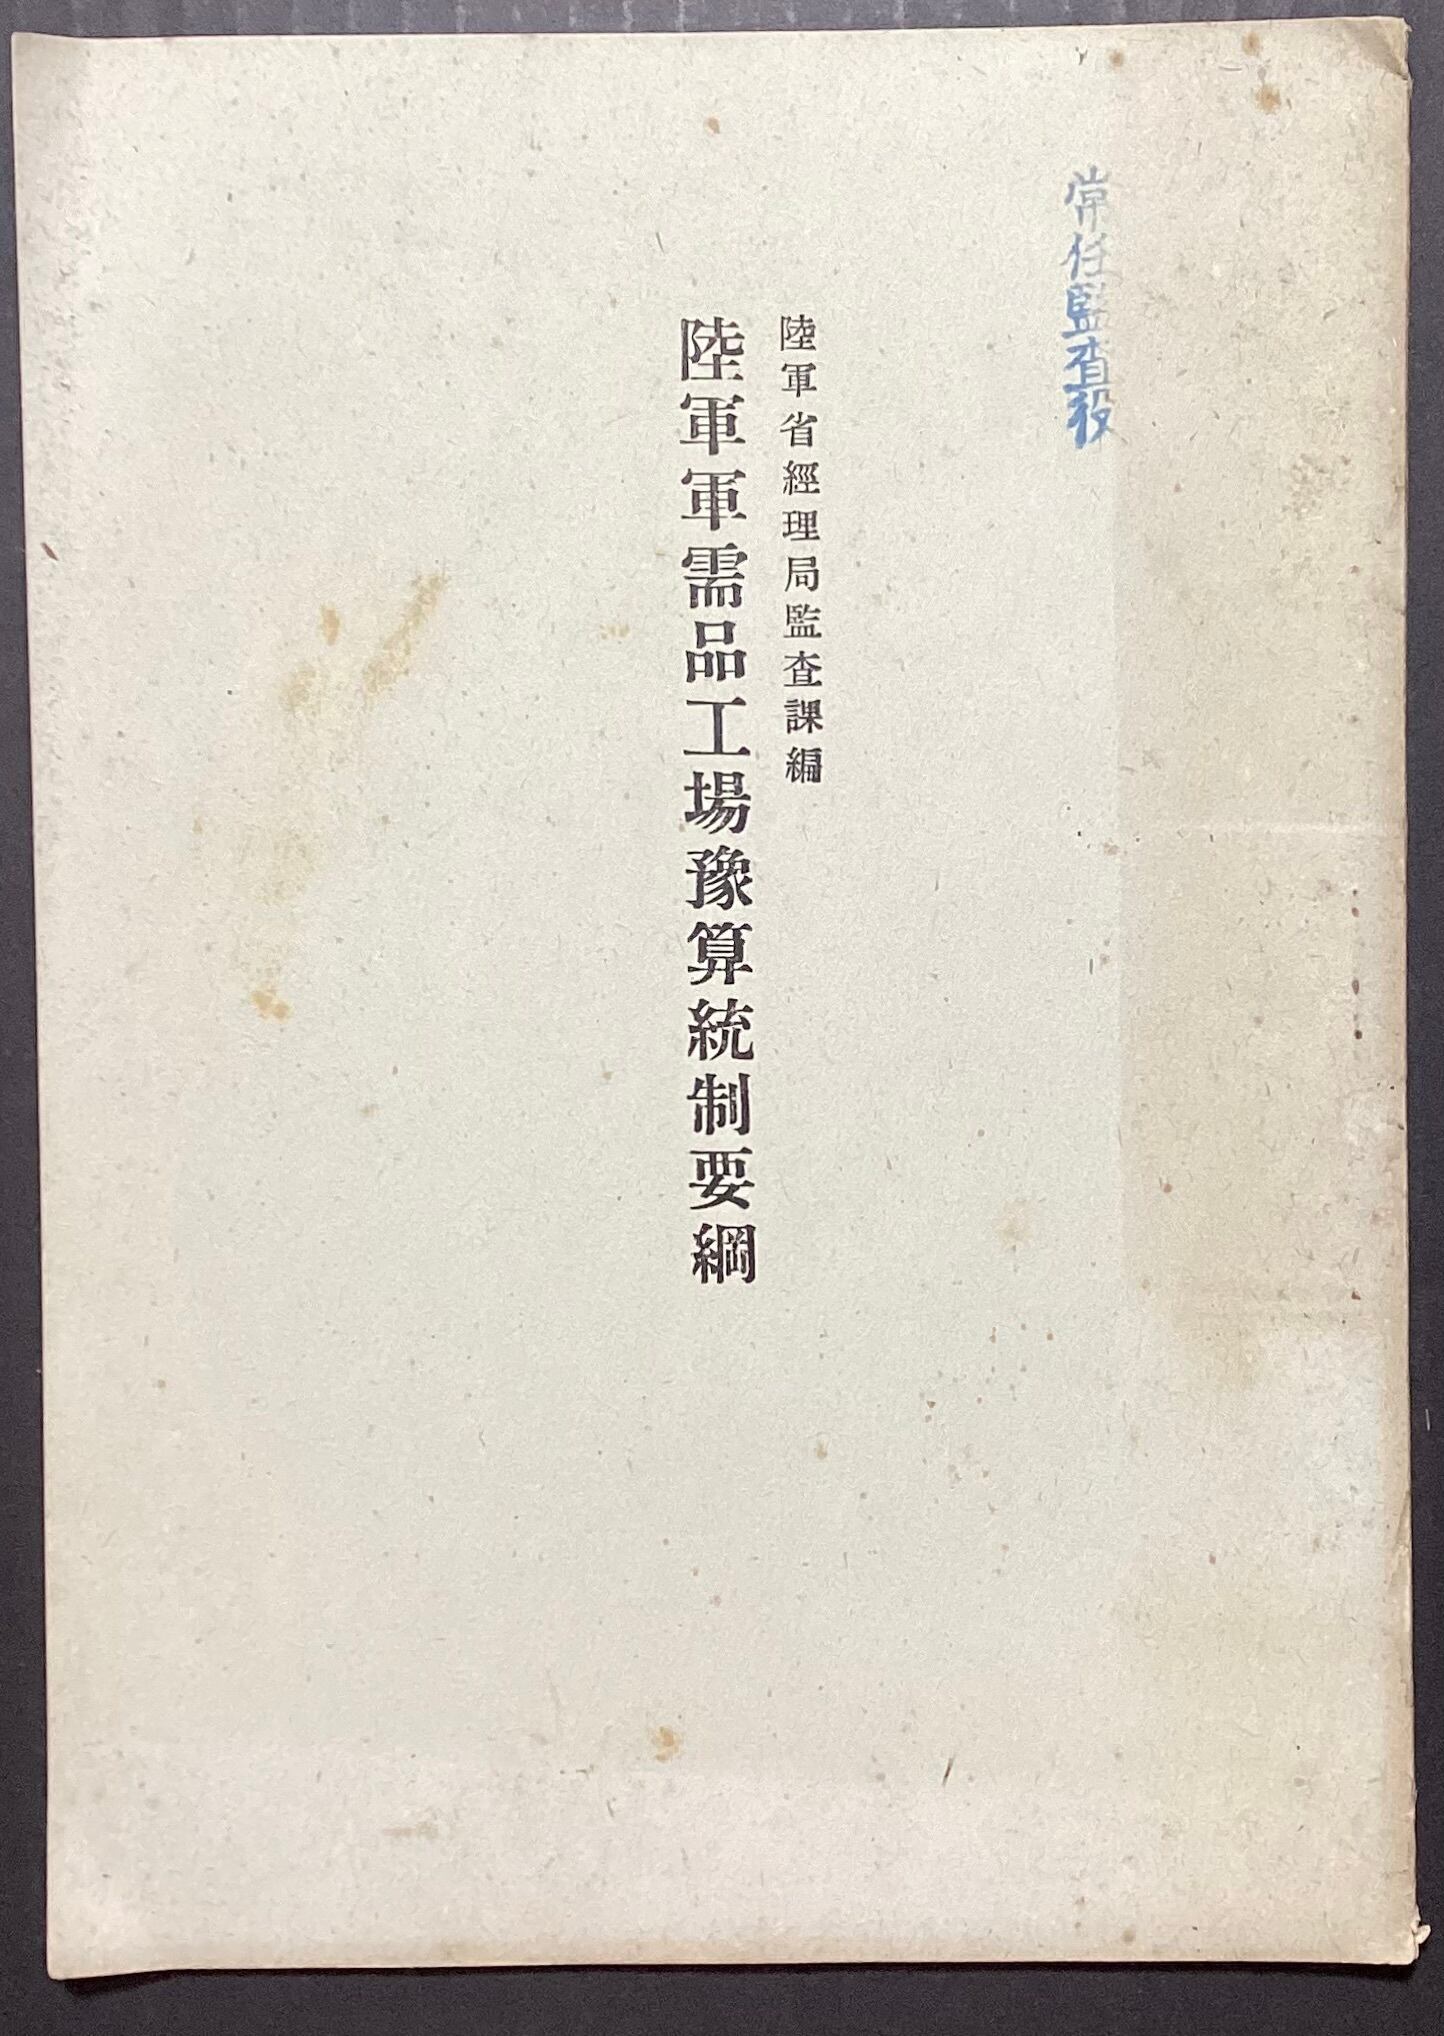 常任監査役
陸軍省經理局監査課編
陸軍軍需品工場豫算統制要綱